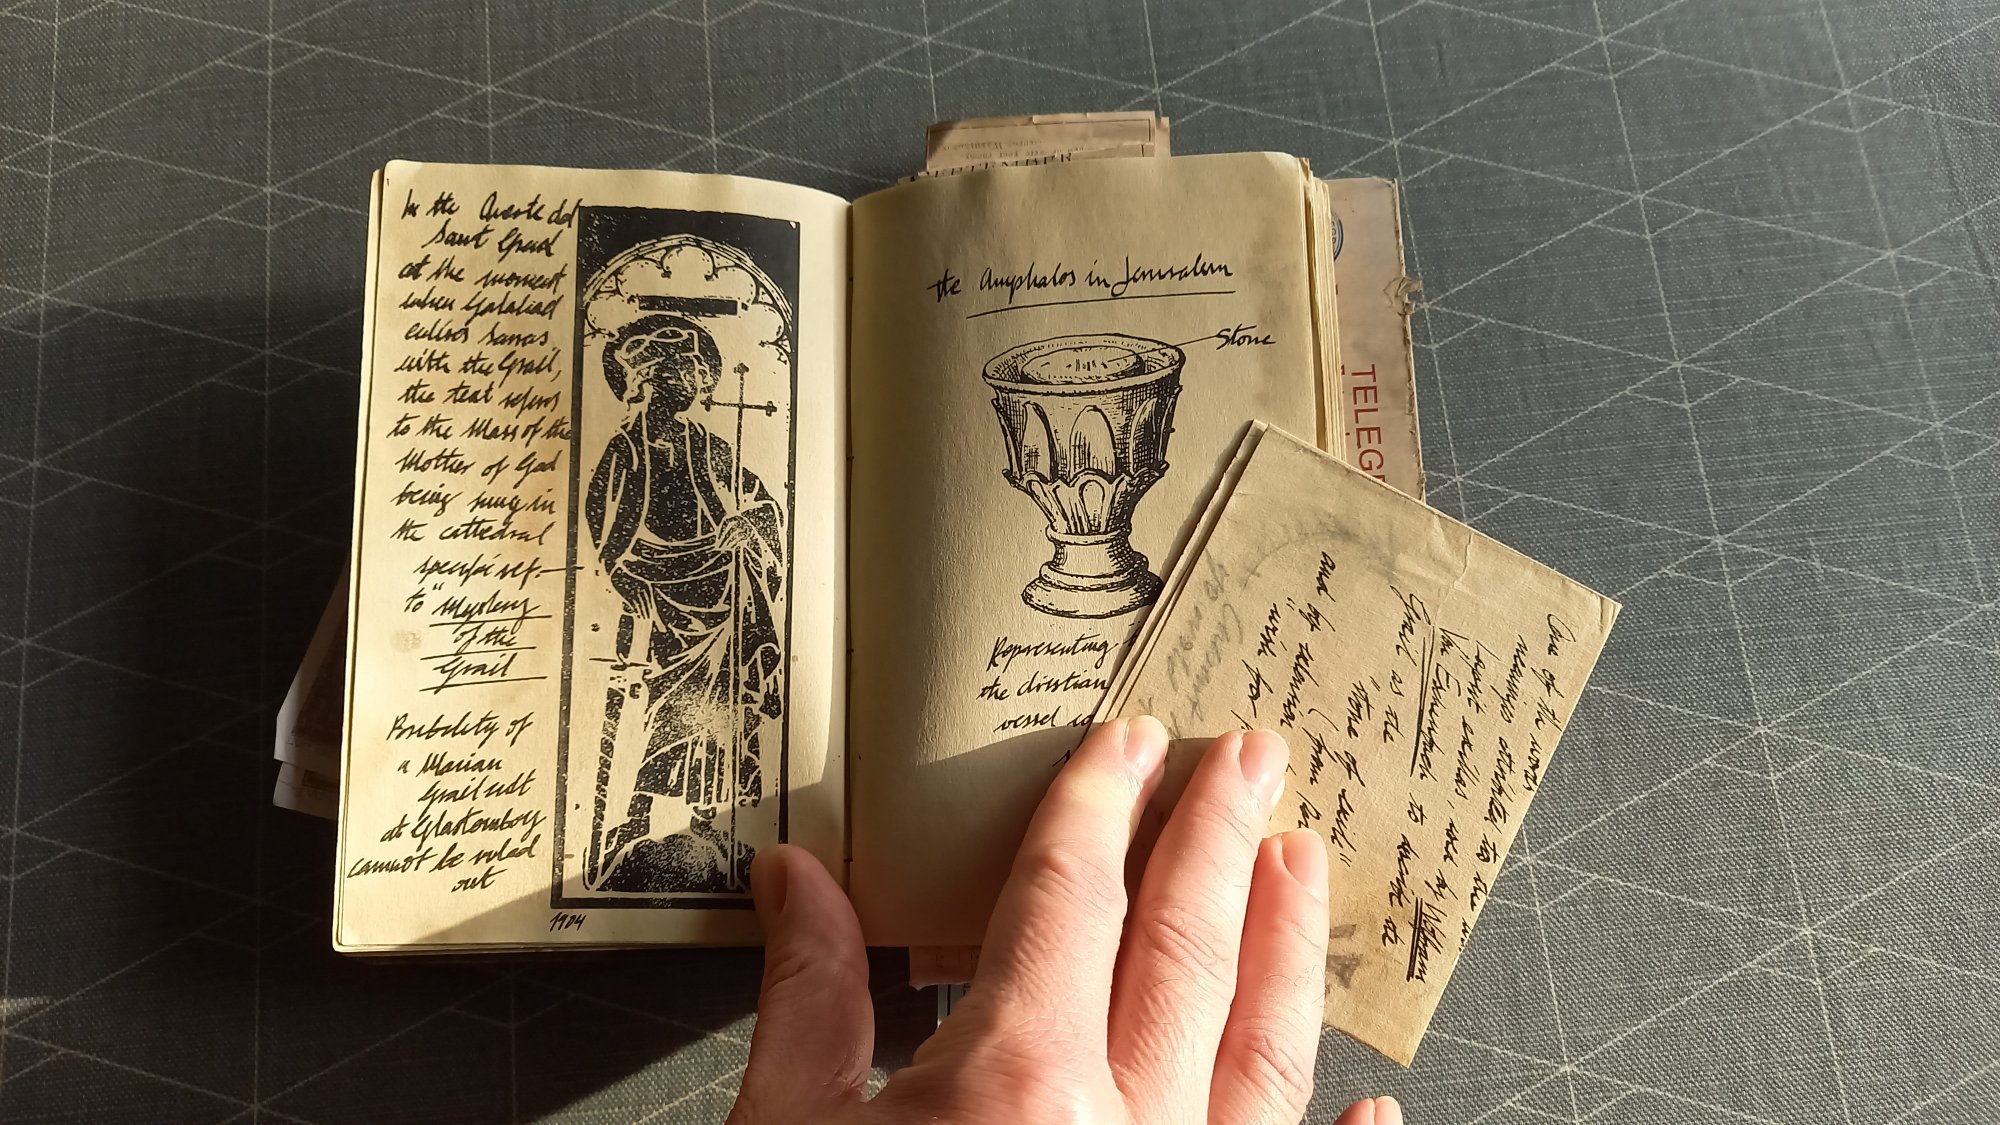 In the Queste del
Saint Graal
at the moment
when Galahad
enters Sarras
with the Grail,
the text refers
to the Mass of the
Mother of God
being sung in
the cathedral
specific ref.
to "Mystery
of the
Grail
Probability of
a Marian
Grail cult
at Glastonbury
cannot be ruled
out
1904
the Omphalos in Jerusalem
Stone
Representing
the christian
vessel
TELEG
One of the words
meanings attributed to the
lapsit exillas, used by Wolfram
Von Eschenbach to describe the
Grail as the
"stone of exile"
and by
"wish for